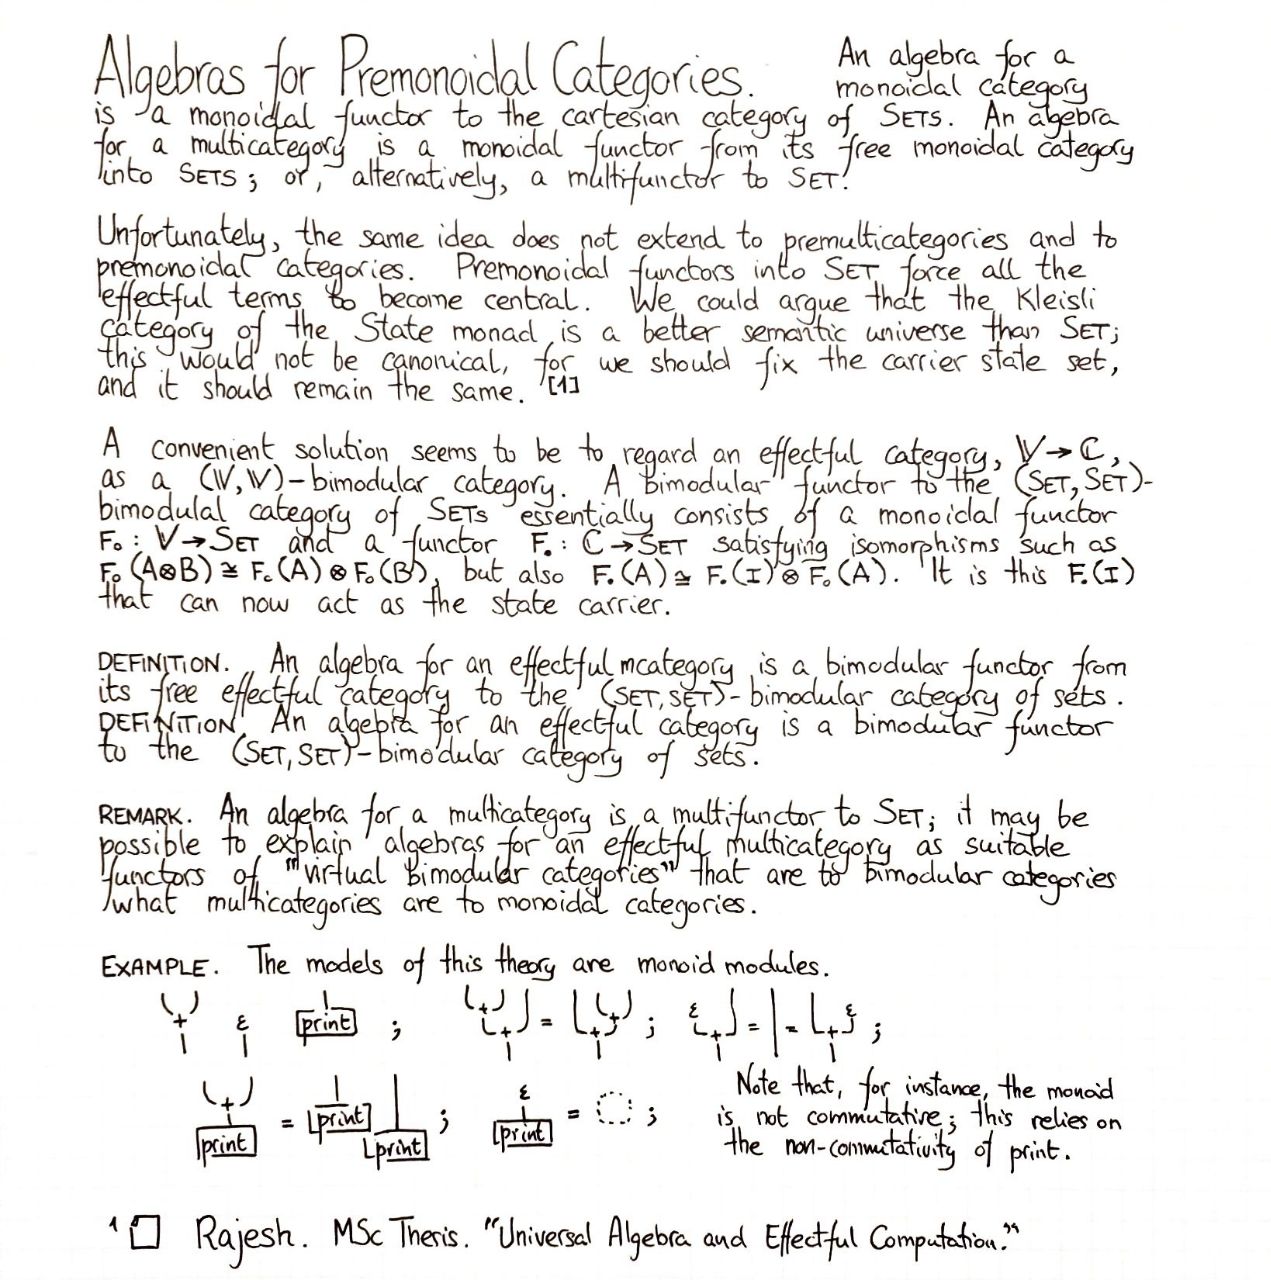 Algebras for Premonoidal Categories. An algebra for a
monoidal category
is a monoidal functor to the cartesian category of SETS. An algebra
for a multicategory is a monoidal functor from its free monoidal category
into SETS; or, alternatively, a multifunctor to SET.
Unfortunately, the same idea does not extend to premulticategories and to
premonoidal categories. Premonoidal functors into SET force all the
effectful terms to become central. We could argue that the Kleisli
category of the State monad is a better semantic universe than SET;
this would not be canonical, for we should fix the carrier state set,
and it should remain the same. [1]
A convenient solution seems to be to regard an effectful category, 𝕍→ℂ,
as a (𝕍,𝕍)-bimodular category. A bimodular functor to the (SET,SET)-
bimodulal category of SETS essentially consists of a monoidal functor
F₀: 𝕍→SET and a functor F.: ℂ→SET satisfying isomorphisms such as
F₀(A⊗B) ≅ F₀(A)⊗F₀(B), but also F.(A) ≅ F.(I)⊗F₀(A). It is this F.(I)
that can now act as the state carrier.
DEFINITION. An algebra for an effectful mcategory is a bimodular functor from
its free effectful category to the (SET,SET)-bimodular category of sets.
DEFINITION An algebra for an effectful category is a bimodular functor
to the (SET,SET)-bimodular category of sets.
REMARK. An algebra for a multicategory is a multifunctor to SET; it may be
possible to explain algebras for an effectful multicategory as suitable
functors of "virtual bimodular categories" that are to bimodular categories
what multicategories are to monoidal categories.
EXAMPLE. The models of this theory are monoid modules.
+ ε print ; + + = + + ; ε + = | = + ε ;
+ print = print print ; ε print = ;
Note that, for instance, the monoid
is not commutative; this relies on
the non-commutativity of print.
1 Rajesh. MSc Thesis. "Universal Algebra and Effectful Computation."